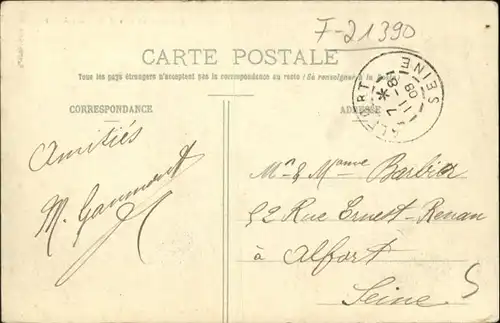 F-21390
CARTE POSTALE
Tous les pays étrangers n'acceptent pas la correspondance au recto (Se renseigner à la
CORRESPONDANCE
ADRESSE
ALFORT
SEINE
Amitiés
Mr & Mme Barbier
52 Rue Ernest-Renan
à Alfort
Seine
5